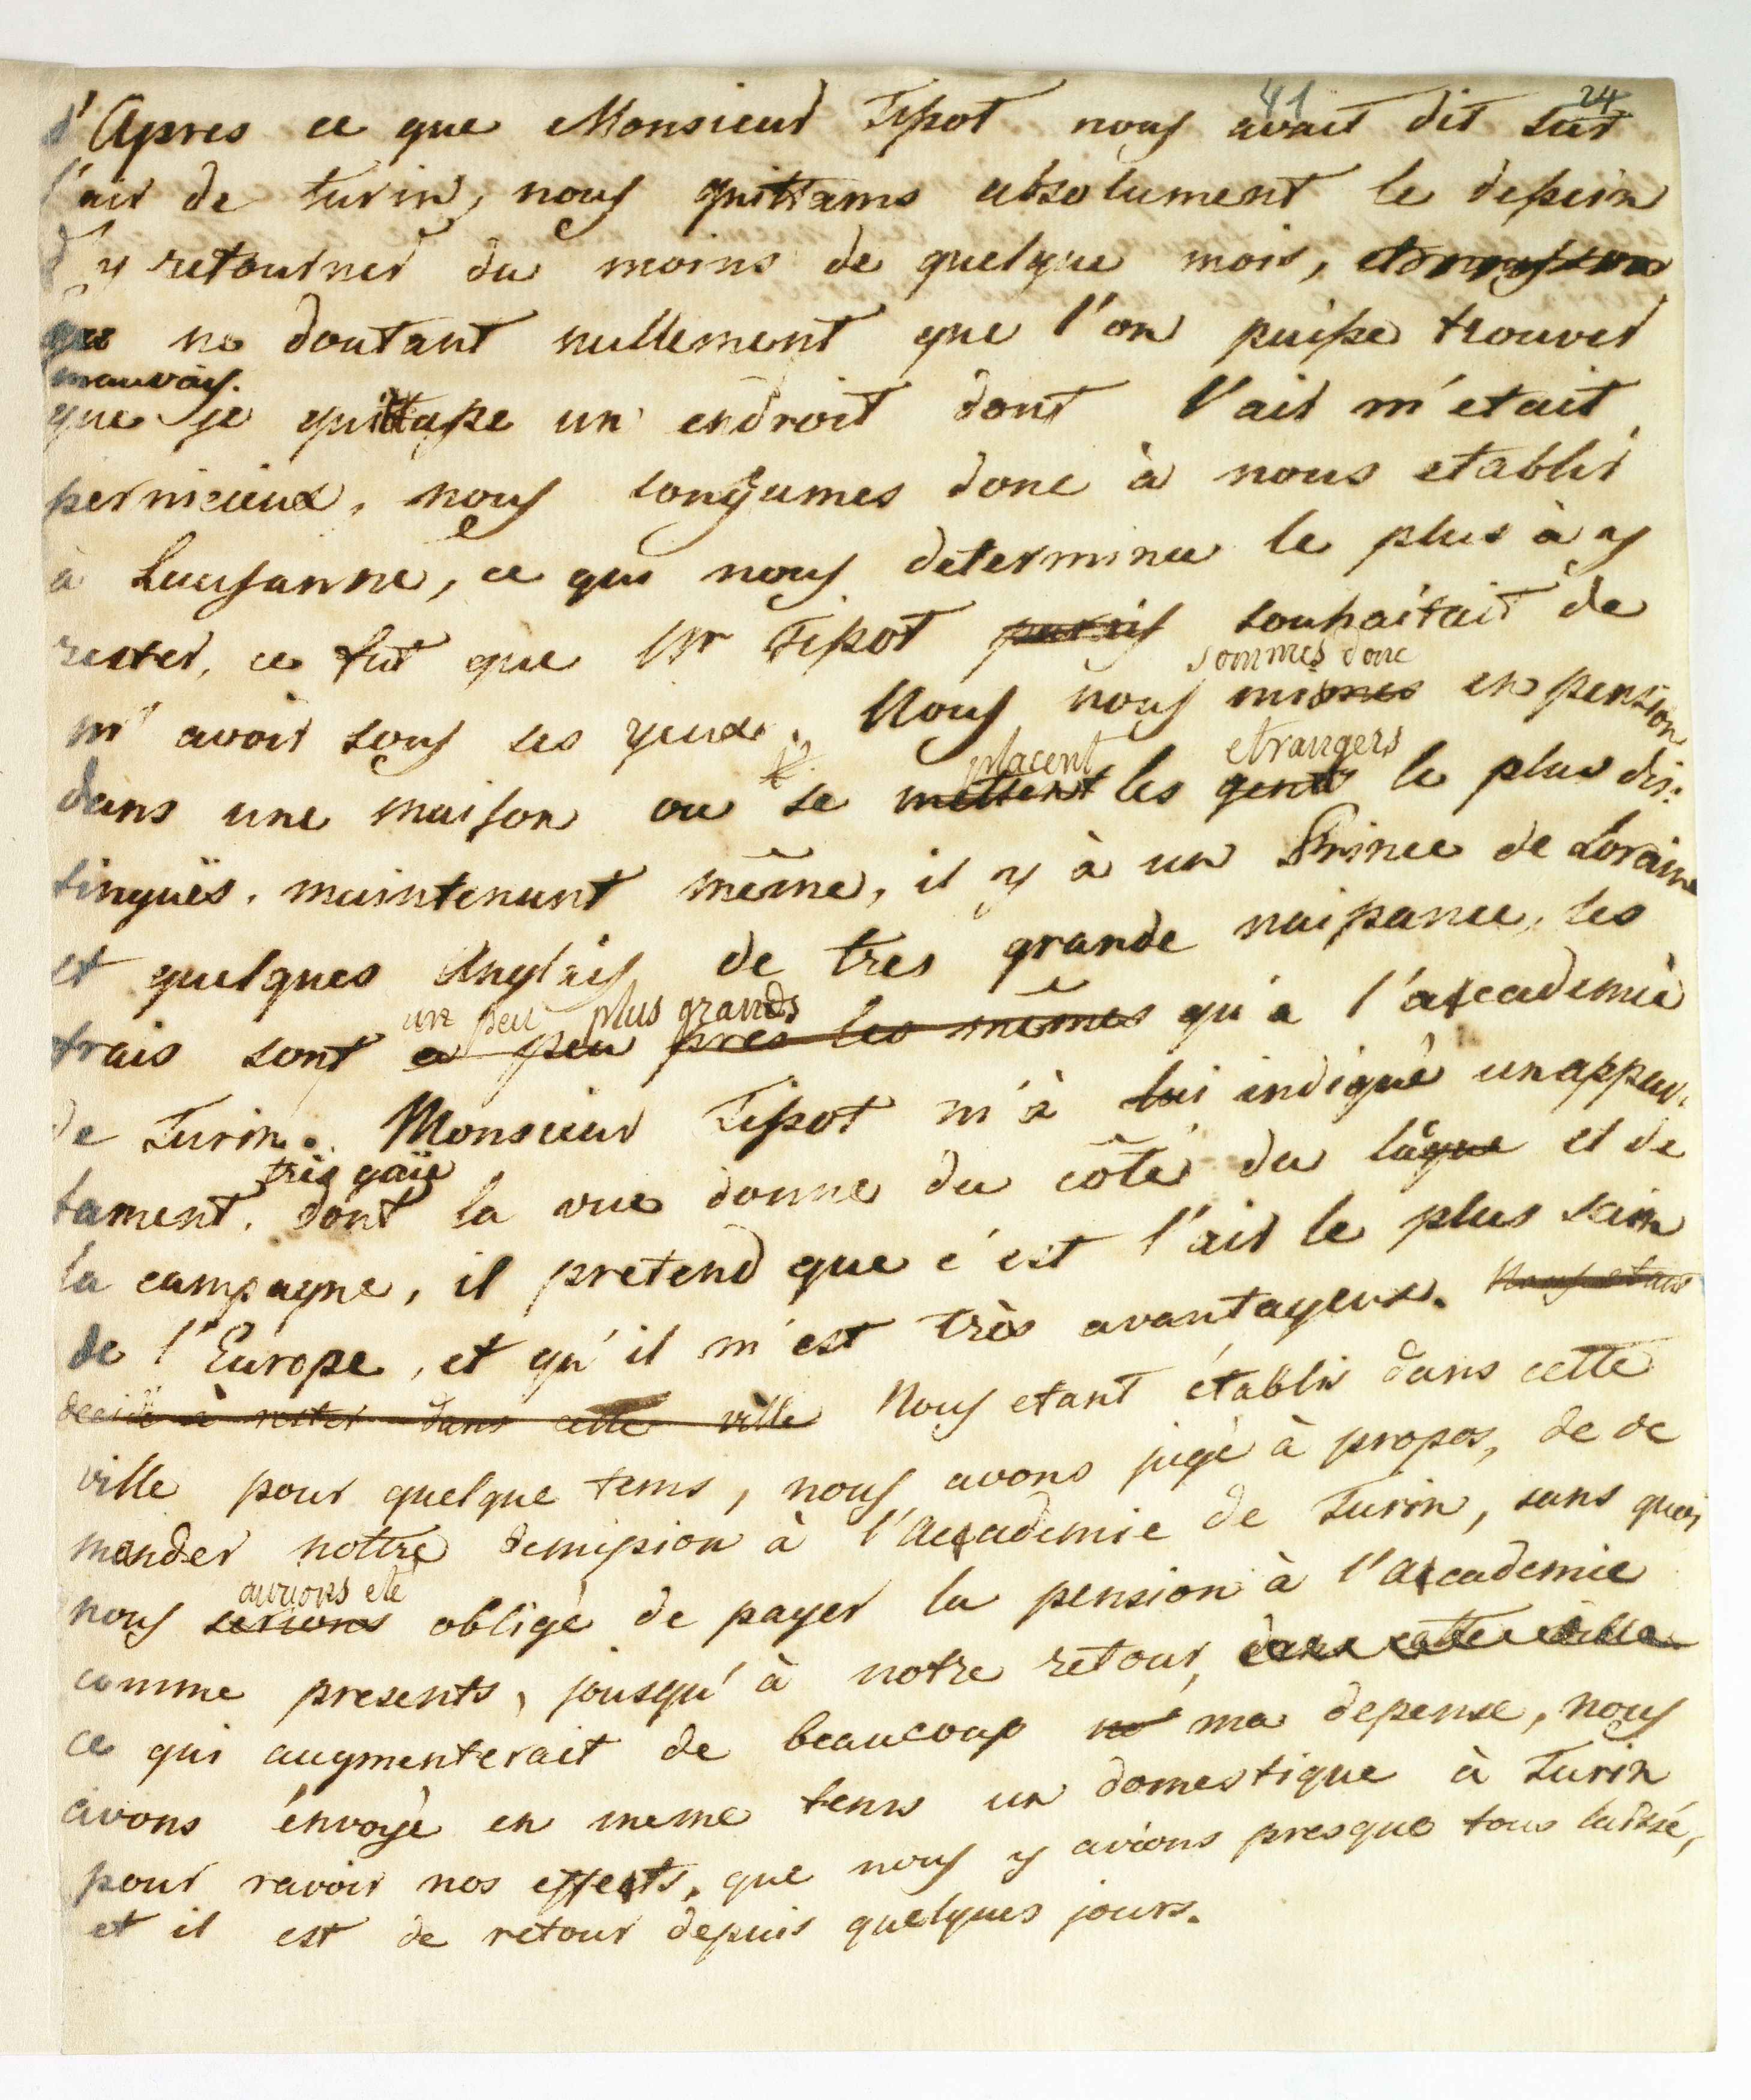 41 24
d'Apres ce que Monsieur Tissot nous avait dit sur
l'air de turin, nous quittams absolument le dessein
d'y retourner du moins de quelque mois,
ne doutant nullement que l'on puisse trouver
mauvais.
que je quittasse un endroit dont l'air m'etait
pernicieux, nous songeumes donc à nous etablir
à Lausanne, ce qui nous determinu le plus à y
rester, ce fut que Mr Tissot souhaitait de
sommes donc
m'avoir sous ses yeux. Nous nous mismes en pension
placent etrangers
dans une maison ou se mettent les gents le plus dis:
tingués. maintenant même, il y à un Prince de Loraine
et quelques Anglais de tres grande naissance, les
un peu plus grands
frais sont a peu pres les mêmes qu'a l'accademie
de Turin. Monsieur Tissot m'à lui indiqué un appar:
très gaïe
tament. dont la vue donne du côté du lâque et de
la campagne, il pretend que c'est l'air le plus sain
de l'Europe, et qu'il m'est très avantageux. Nous etans
decidé à rester dans cette ville Nous etant établis dans cette
ville pour quelque tems, nous avons jugé à propos, de de
mander nottre demission à l'Accademie de Turin, sans quoi
aurions eté
nous serions obligé de payer la pension à l'Accademie
comme presents, jousqu'à notre retour, dans cette ville
ce qui augmenterait de beaucoup no ma depense, nous
avons énvoyé en meme tems un domestique à Turin
pour ravoir nos effects, que nous y avions presque tous laissé,
et il est de retour depuis quelques jours.